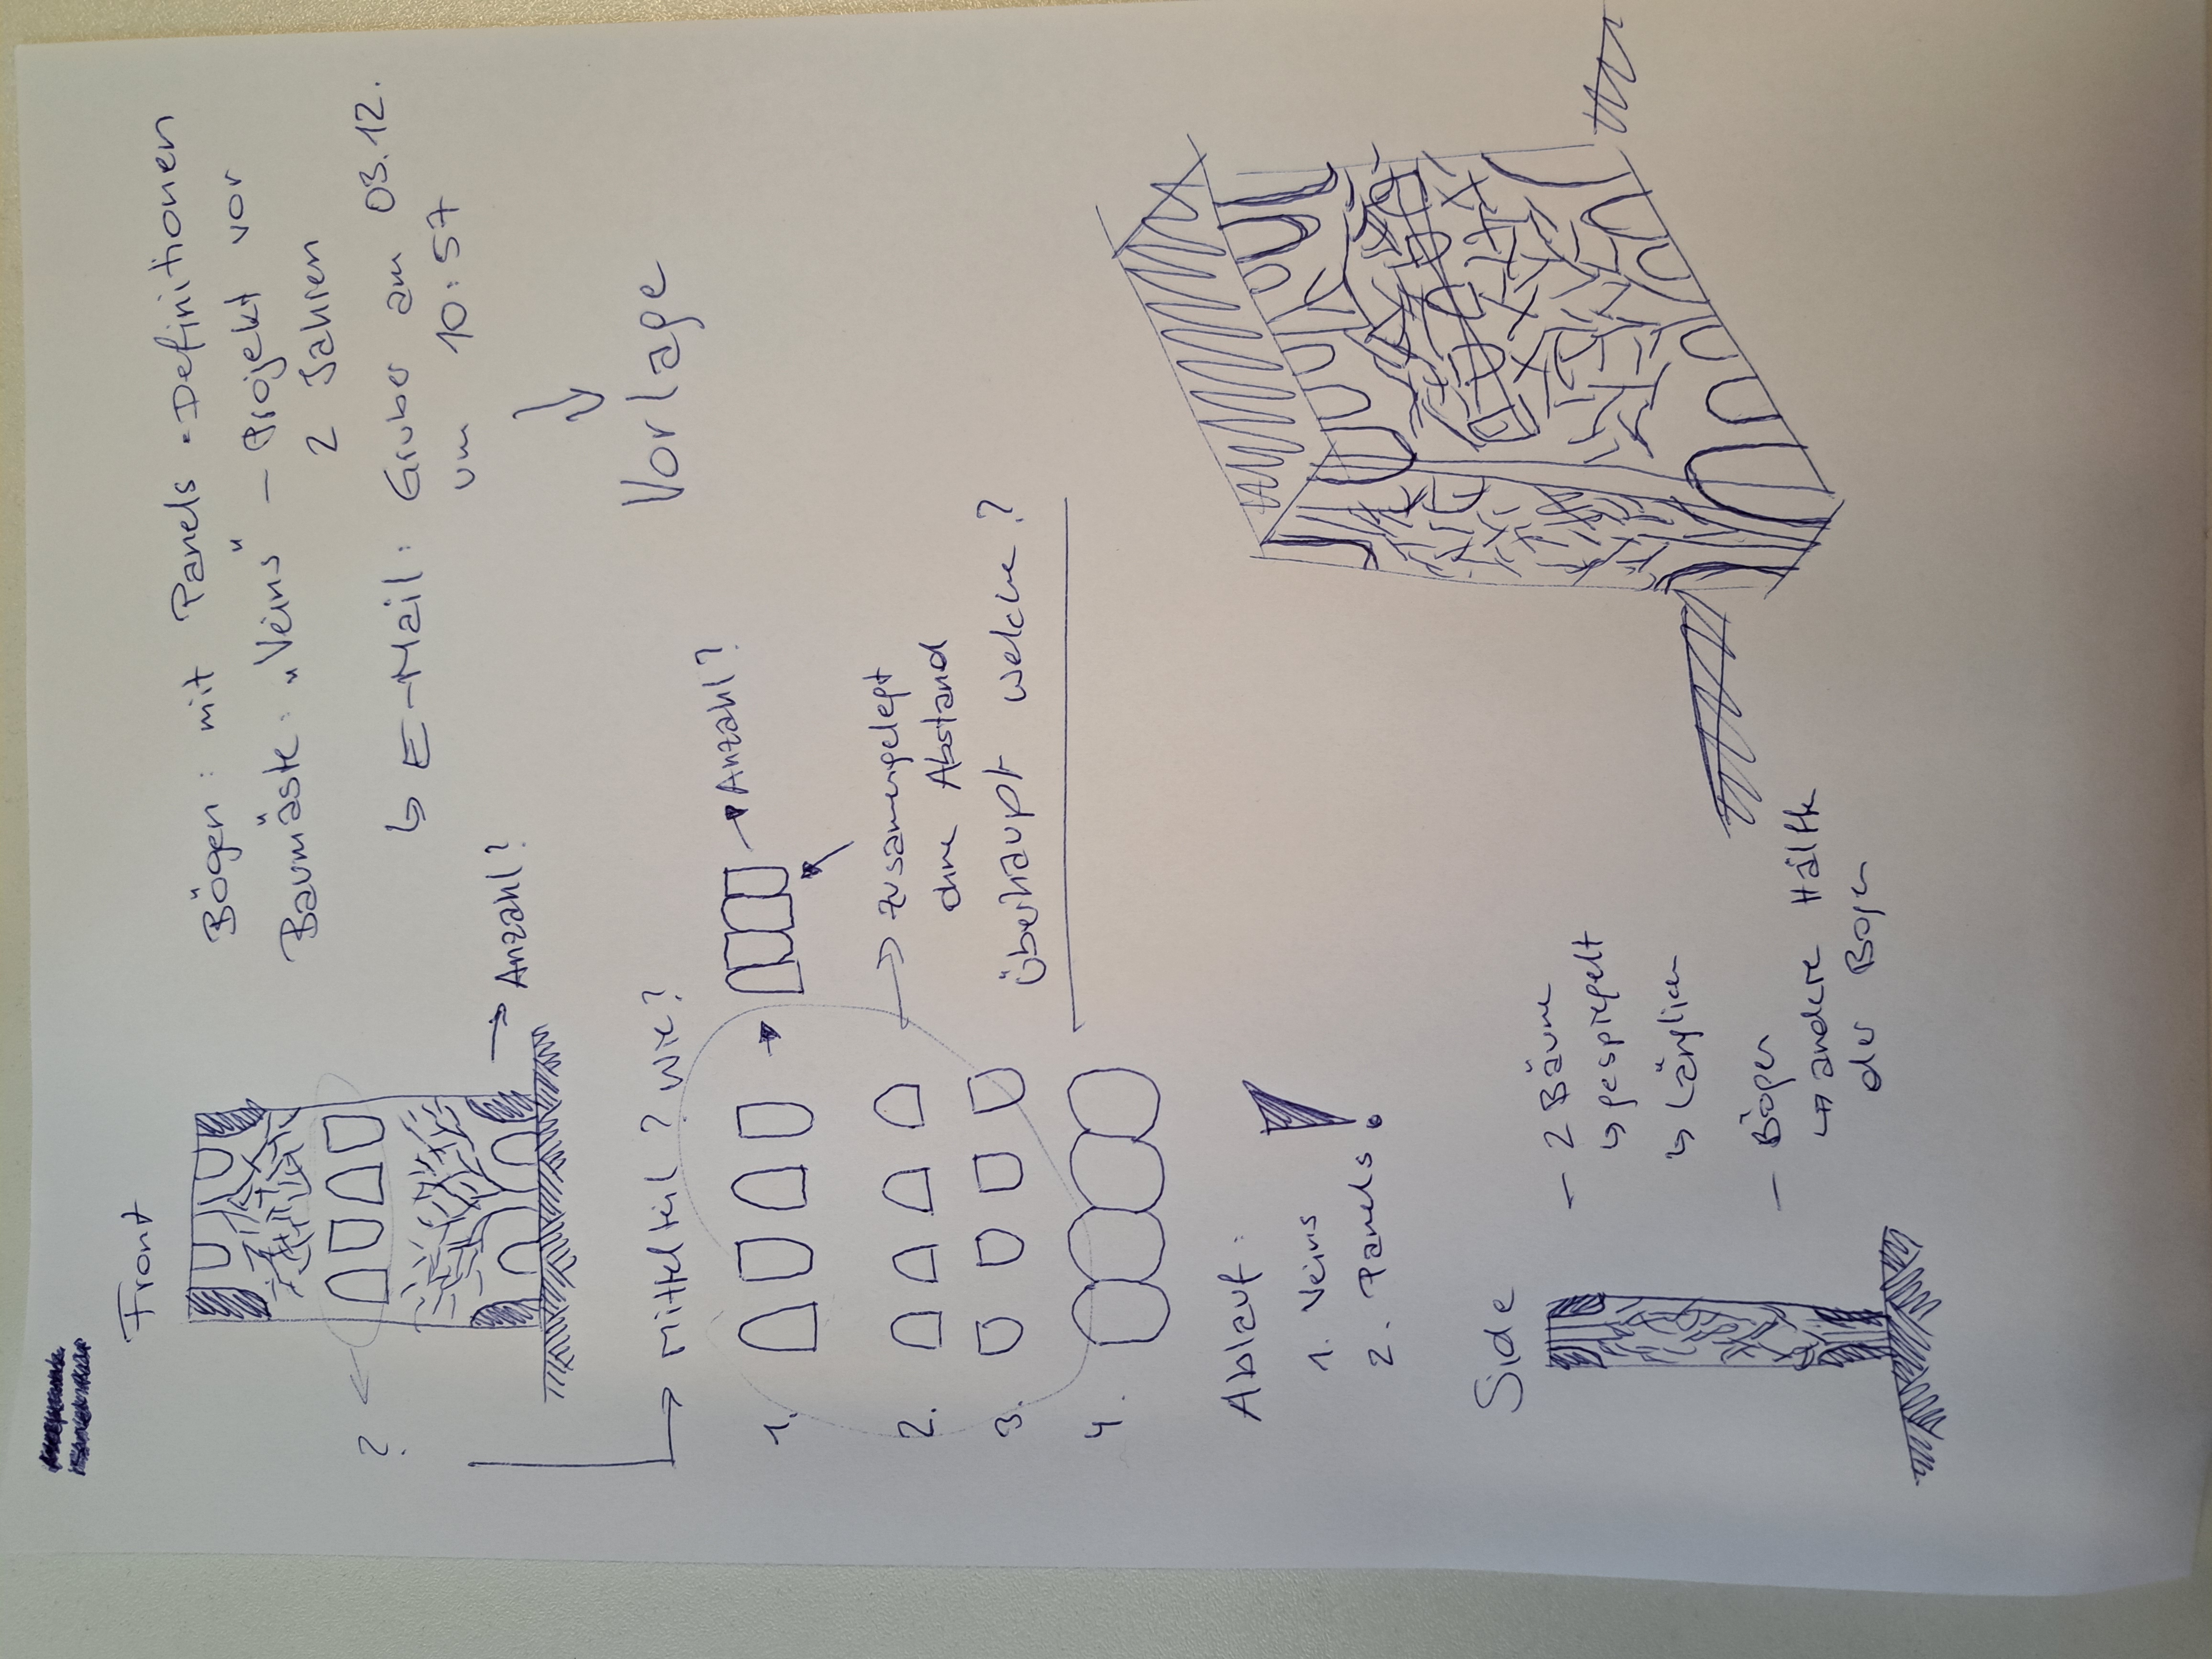 Front
Bögen: mit Panels-Definitionen
Baumäste: „Veins" - Projekt vor
2 Jahren
↳ E-Mail: Gruber am 03.12.
um 10:57
Vorlage
?
→ Anzahl?
→ Mittelteil? Wie?
1.
→ Anzahl?
2.
→ zusamengelegt
ohne Abstand
3.
Überhaupt welche?
4.
Ablauf:
1. Veins
2. Panels
Side
- 2 Bäume
↳ gespiegelt
↳ Länglich
- Bögen
↳ andere Hälfte
der Bogen